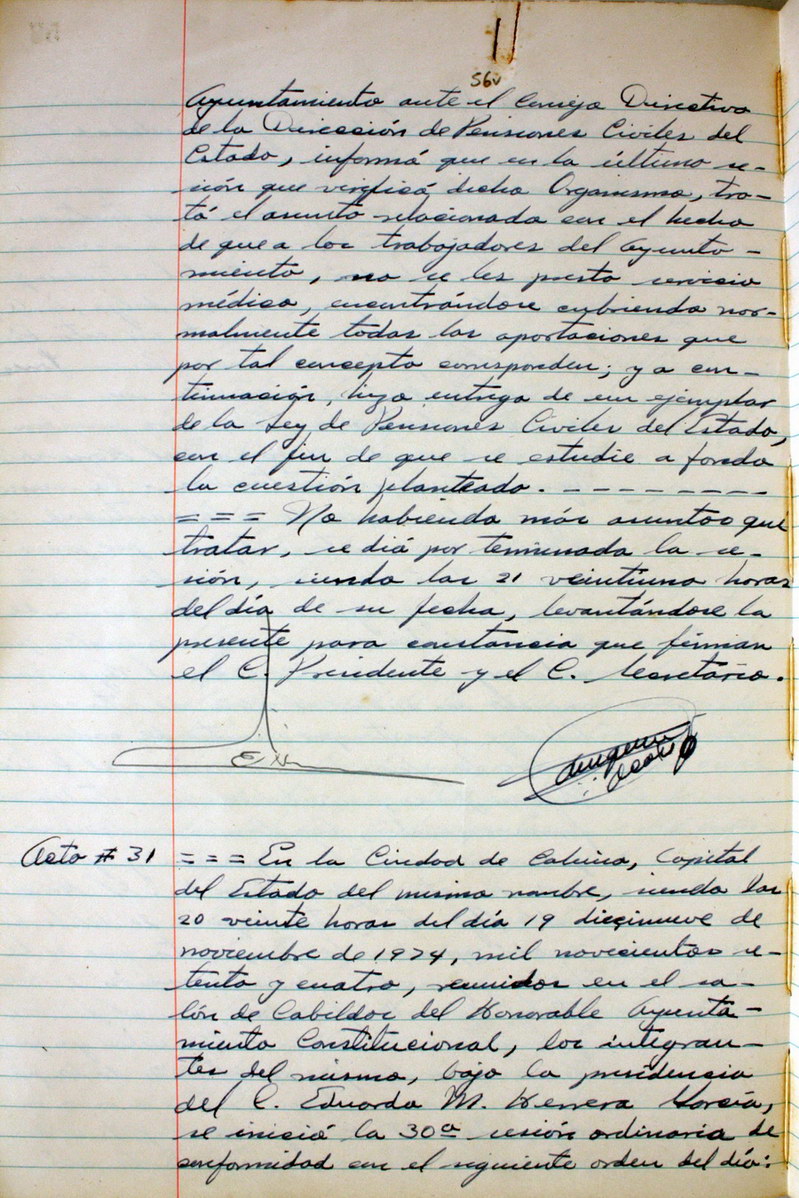 56v
Ayuntamiento ante el Consejo Directivo
de la Dirección de Pensiones Civiles del
Estado, informó que en la último se-
sión que virificó dicho Organismo, tra-
tó el asunto relacionado con el hecho
de que a los trabajadores del Ayunta-
miento, no se les presta servicio
médico, encontrándose cubriendo nor-
malmente todas las aportaciones que
por tal concepto corresponden; y a con-
tinuación, hizo entrega de un ejemplar
de la Ley de Pensiones Civiles del Estado,
con el fin de que se estudie a fondo
la cuestión planteada. - - - - - - - -
= = = No habiendo más asuntos que
tratar, se dió por terminada la se-
sión, siendo las 21 veintiuna horas
del día de su fecha, levantándose la
presente para constancia que firman
el C. Presidente y el C. Secretario.
Acta # 31 = = = En la Ciudad de Colima, Capital
del Estado del mismo nombre, siendo las
20 veinte horas del día 19 diecinueve de
noviembre de 1974, mil novecientos se-
tenta y cuatro, reunidos en el sa-
lón de Cabildos del Honorable Ayunta-
miento Constitucional, los integran-
tes del mismo, bajo la presidencia
del C. Eduardo M. Herrera García,
se inició la 30a sesión ordinaria de
conformidad con el siguiente orden del día: